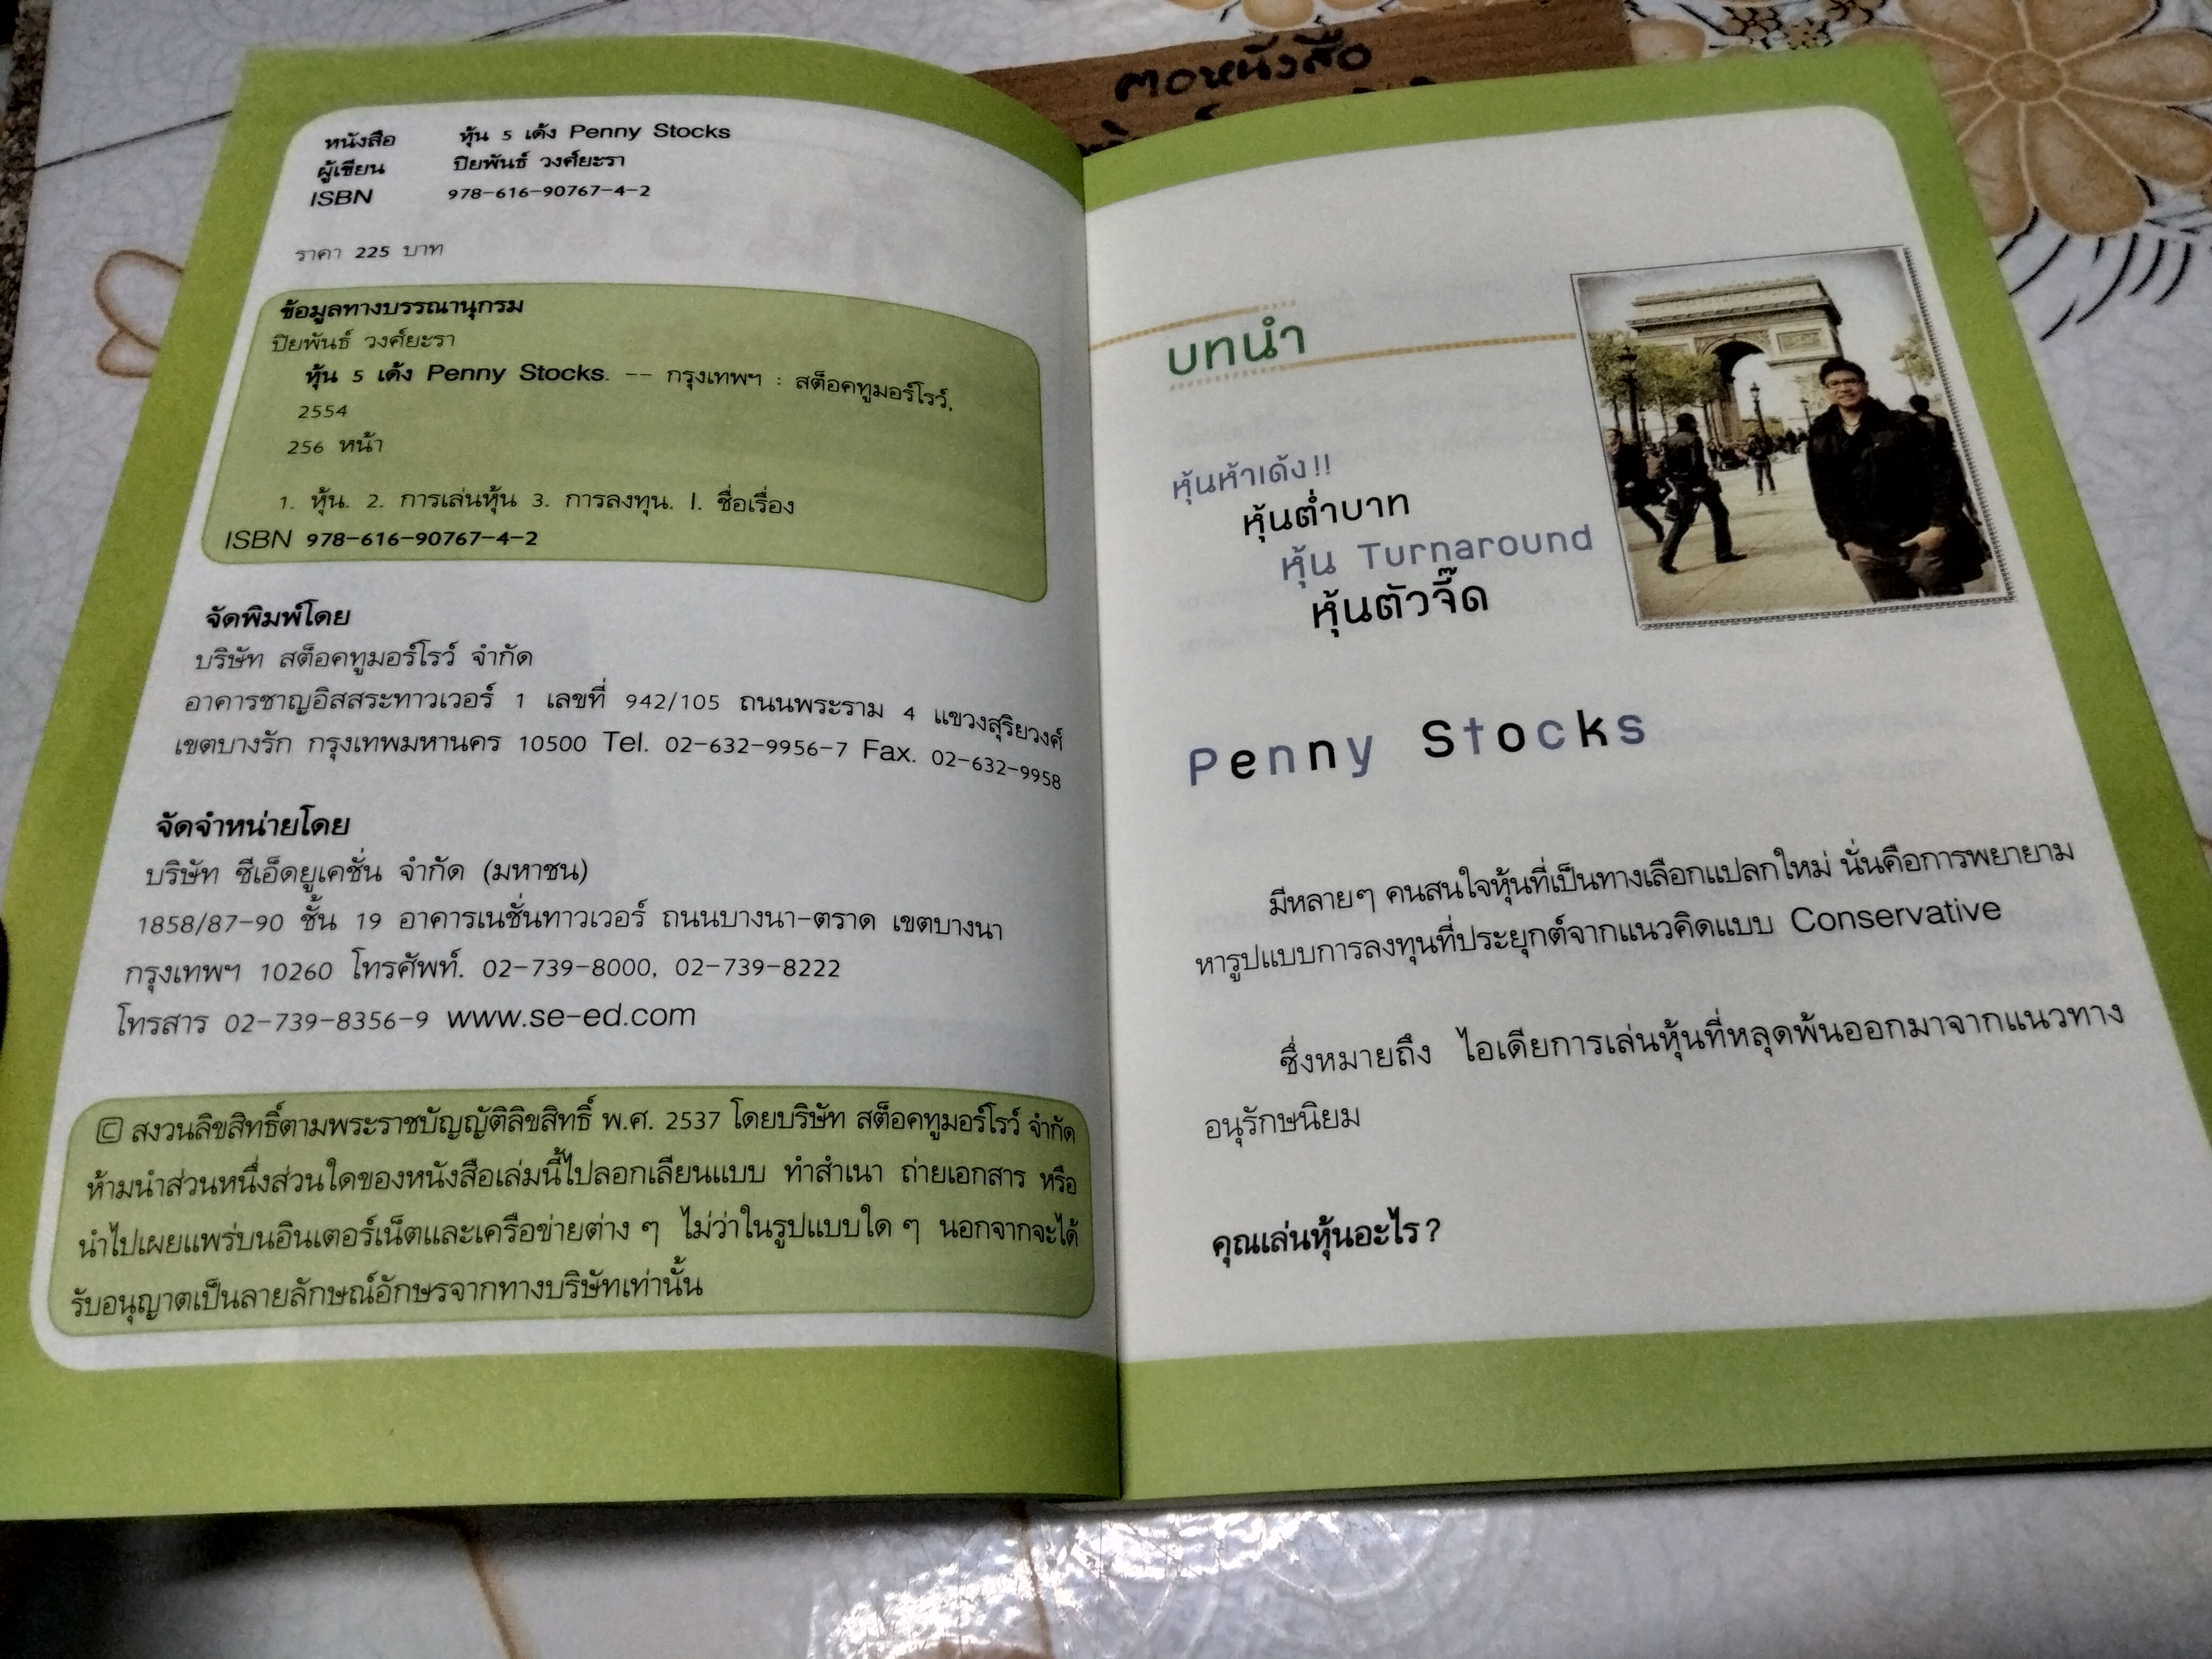 ฅอหนังสือ
หนังสือ หุ้น 5 เด้ง Penny Stocks
ผู้เขียน ปิยพันธ์ วงศ์ยะรา
ISBN 978-616-90767-4-2
ราคา 225 บาท
ข้อมูลทางบรรณานุกรม
ปิยพันธ์ วงศ์ยะรา
หุ้น 5 เด้ง Penny Stocks. -- กรุงเทพฯ : สต็อคทูมอร์โรว์,
2554
256 หน้า
1. หุ้น. 2. การเล่นหุ้น 3. การลงทุน. I. ชื่อเรื่อง
ISBN 978-616-90767-4-2
จัดพิมพ์โดย
บริษัท สต็อคทูมอร์โรว์ จำกัด
อาคารชาญอิสสระทาวเวอร์ 1 เลขที่ 942/105 ถนนพระราม 4 แขวงสุริยวงศ์
เขตบางรัก กรุงเทพมหานคร 10500 Tel. 02-632-9956-7 Fax. 02-632-9958
จัดจำหน่ายโดย
บริษัท ซีเอ็ดยูเคชั่น จำกัด (มหาชน)
1858/87-90 ชั้น 19 อาคารเนชั่นทาวเวอร์ ถนนบางนา-ตราด เขตบางนา
กรุงเทพฯ 10260 โทรศัพท์. 02-739-8000, 02-739-8222
โทรสาร 02-739-8356-9 www.se-ed.com
© สงวนลิขสิทธิ์ตามพระราชบัญญัติลิขสิทธิ์ พ.ศ. 2537 โดยบริษัท สต็อคทูมอร์โรว์ จำกัด
ห้ามนำส่วนหนึ่งส่วนใดของหนังสือเล่มนี้ไปลอกเลียนแบบ ทำสำเนา ถ่ายเอกสาร หรือ
นำไปเผยแพร่บนอินเตอร์เน็ตและเครือข่ายต่าง ๆ ไม่ว่าในรูปแบบใด ๆ นอกจากจะได้
รับอนุญาตเป็นลายลักษณ์อักษรจากทางบริษัทเท่านั้น
บทนำ
หุ้นห้าเด้ง!!
หุ้นต่ำบาท
หุ้น Turnaround
หุ้นตัวจี๊ด
Penny Stocks
มีหลายๆ คนสนใจหุ้นที่เป็นทางเลือกแปลกใหม่ นั่นคือการพยายาม
หารูปแบบการลงทุนที่ประยุกต์จากแนวคิดแบบ Conservative
ซึ่งหมายถึง ไอเดียการเล่นหุ้นที่หลุดพ้นออกมาจากแนวทาง
อนุรักษนิยม
คุณเล่นหุ้นอะไร?